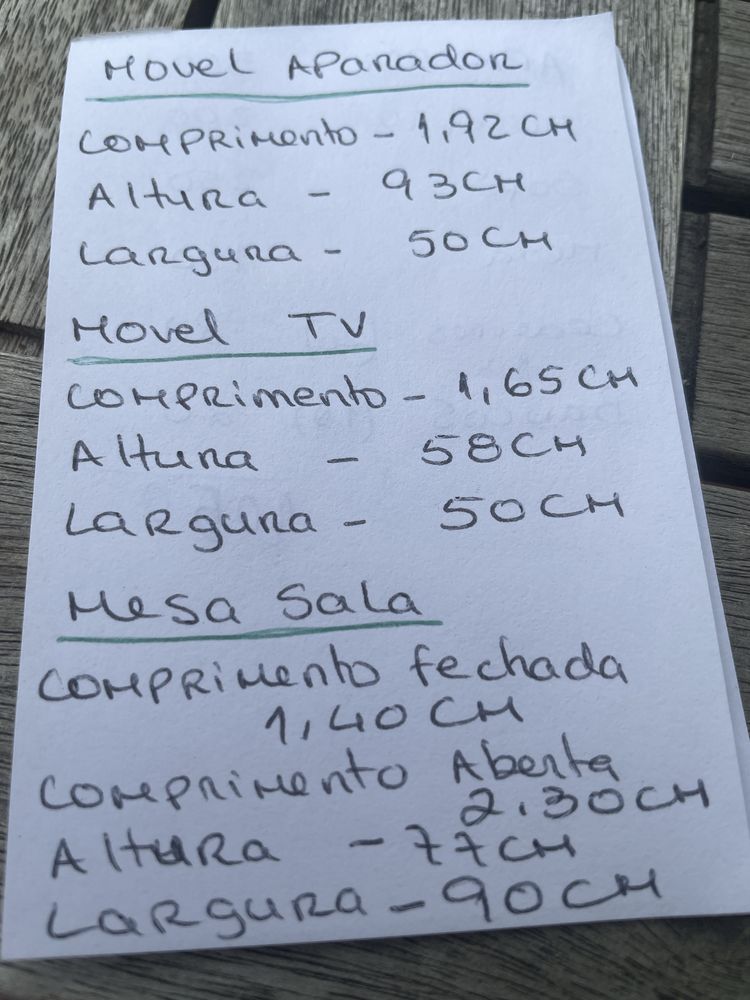 Movel Aparador
Comprimento - 1,92 CM
Altura - 93 CM
Largura - 50 CM
Movel TV
Comprimento - 1,65 CM
Altura - 58 CM
Largura - 50 CM
Mesa Sala
Comprimento fechada
1,40 CM
Comprimento Aberta
2.30 CM
Altura - 77 CM
Largura - 90 CM